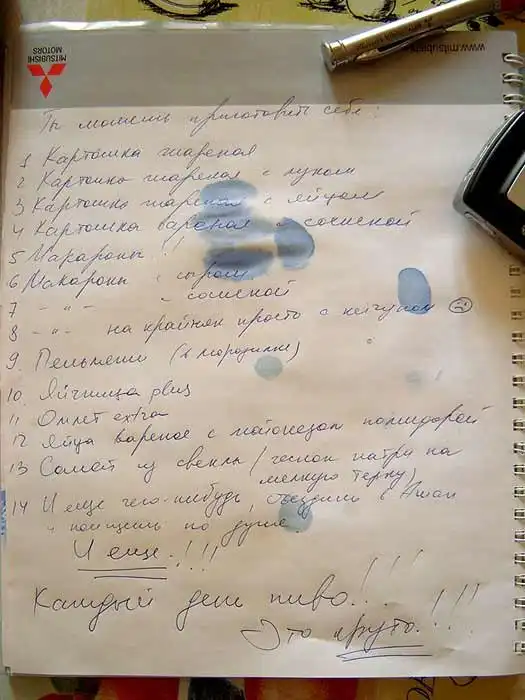 MITSUBISHI
MOTORS
www.mitsubishi
Ты можешь приготовить себе:
1 Картошка жареная
2 Картошка жареная с луком
3 Картошка жареная с яйцом
4 Картошка вареная с сосиской
5 Макароны!!
6 Макароны с сыром
7 -"- с сосиской
8 -"- на крайняк просто с кетчупом ☹
9. Пельмени (в морозилке)
10. Яичница plus
11 Омлет extra
12 Яйца вареное с майонезом помидорой
13 Салат из свеклы (чеснок натри на
мелкую терку)
14 И еще чего-нибудь, съездишь в Ашан
и поищешь по душе.
И еще!!!
Каждый день пиво!!!
Это круто!!!